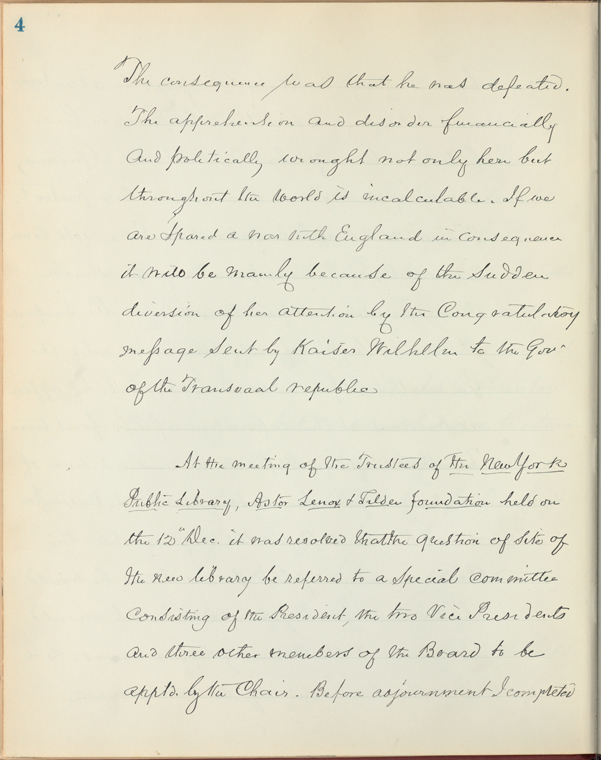 4
The consequence was that he was defeated.
The apprehension and disorder financially
and politically wrought not only here but
throughout the world is incalculable. If we
are spared a war with England in consequence
it will be mainly because of the sudden
diversion of her attention by the Congratulatory
message sent by Kaiser Wilhelm to the Govr
of the Transvaal republic
At the meeting of the Trustees of The New York
Public Library, Astor Lenox & Tilden foundation held on
the 12th Dec. it was resolved that the question of site of
the new library be referred to a special committee
consisting of the President, the two Vice Presidents
and three other members of the Board to be
apptd. by the Chair. Before adjournment I completed